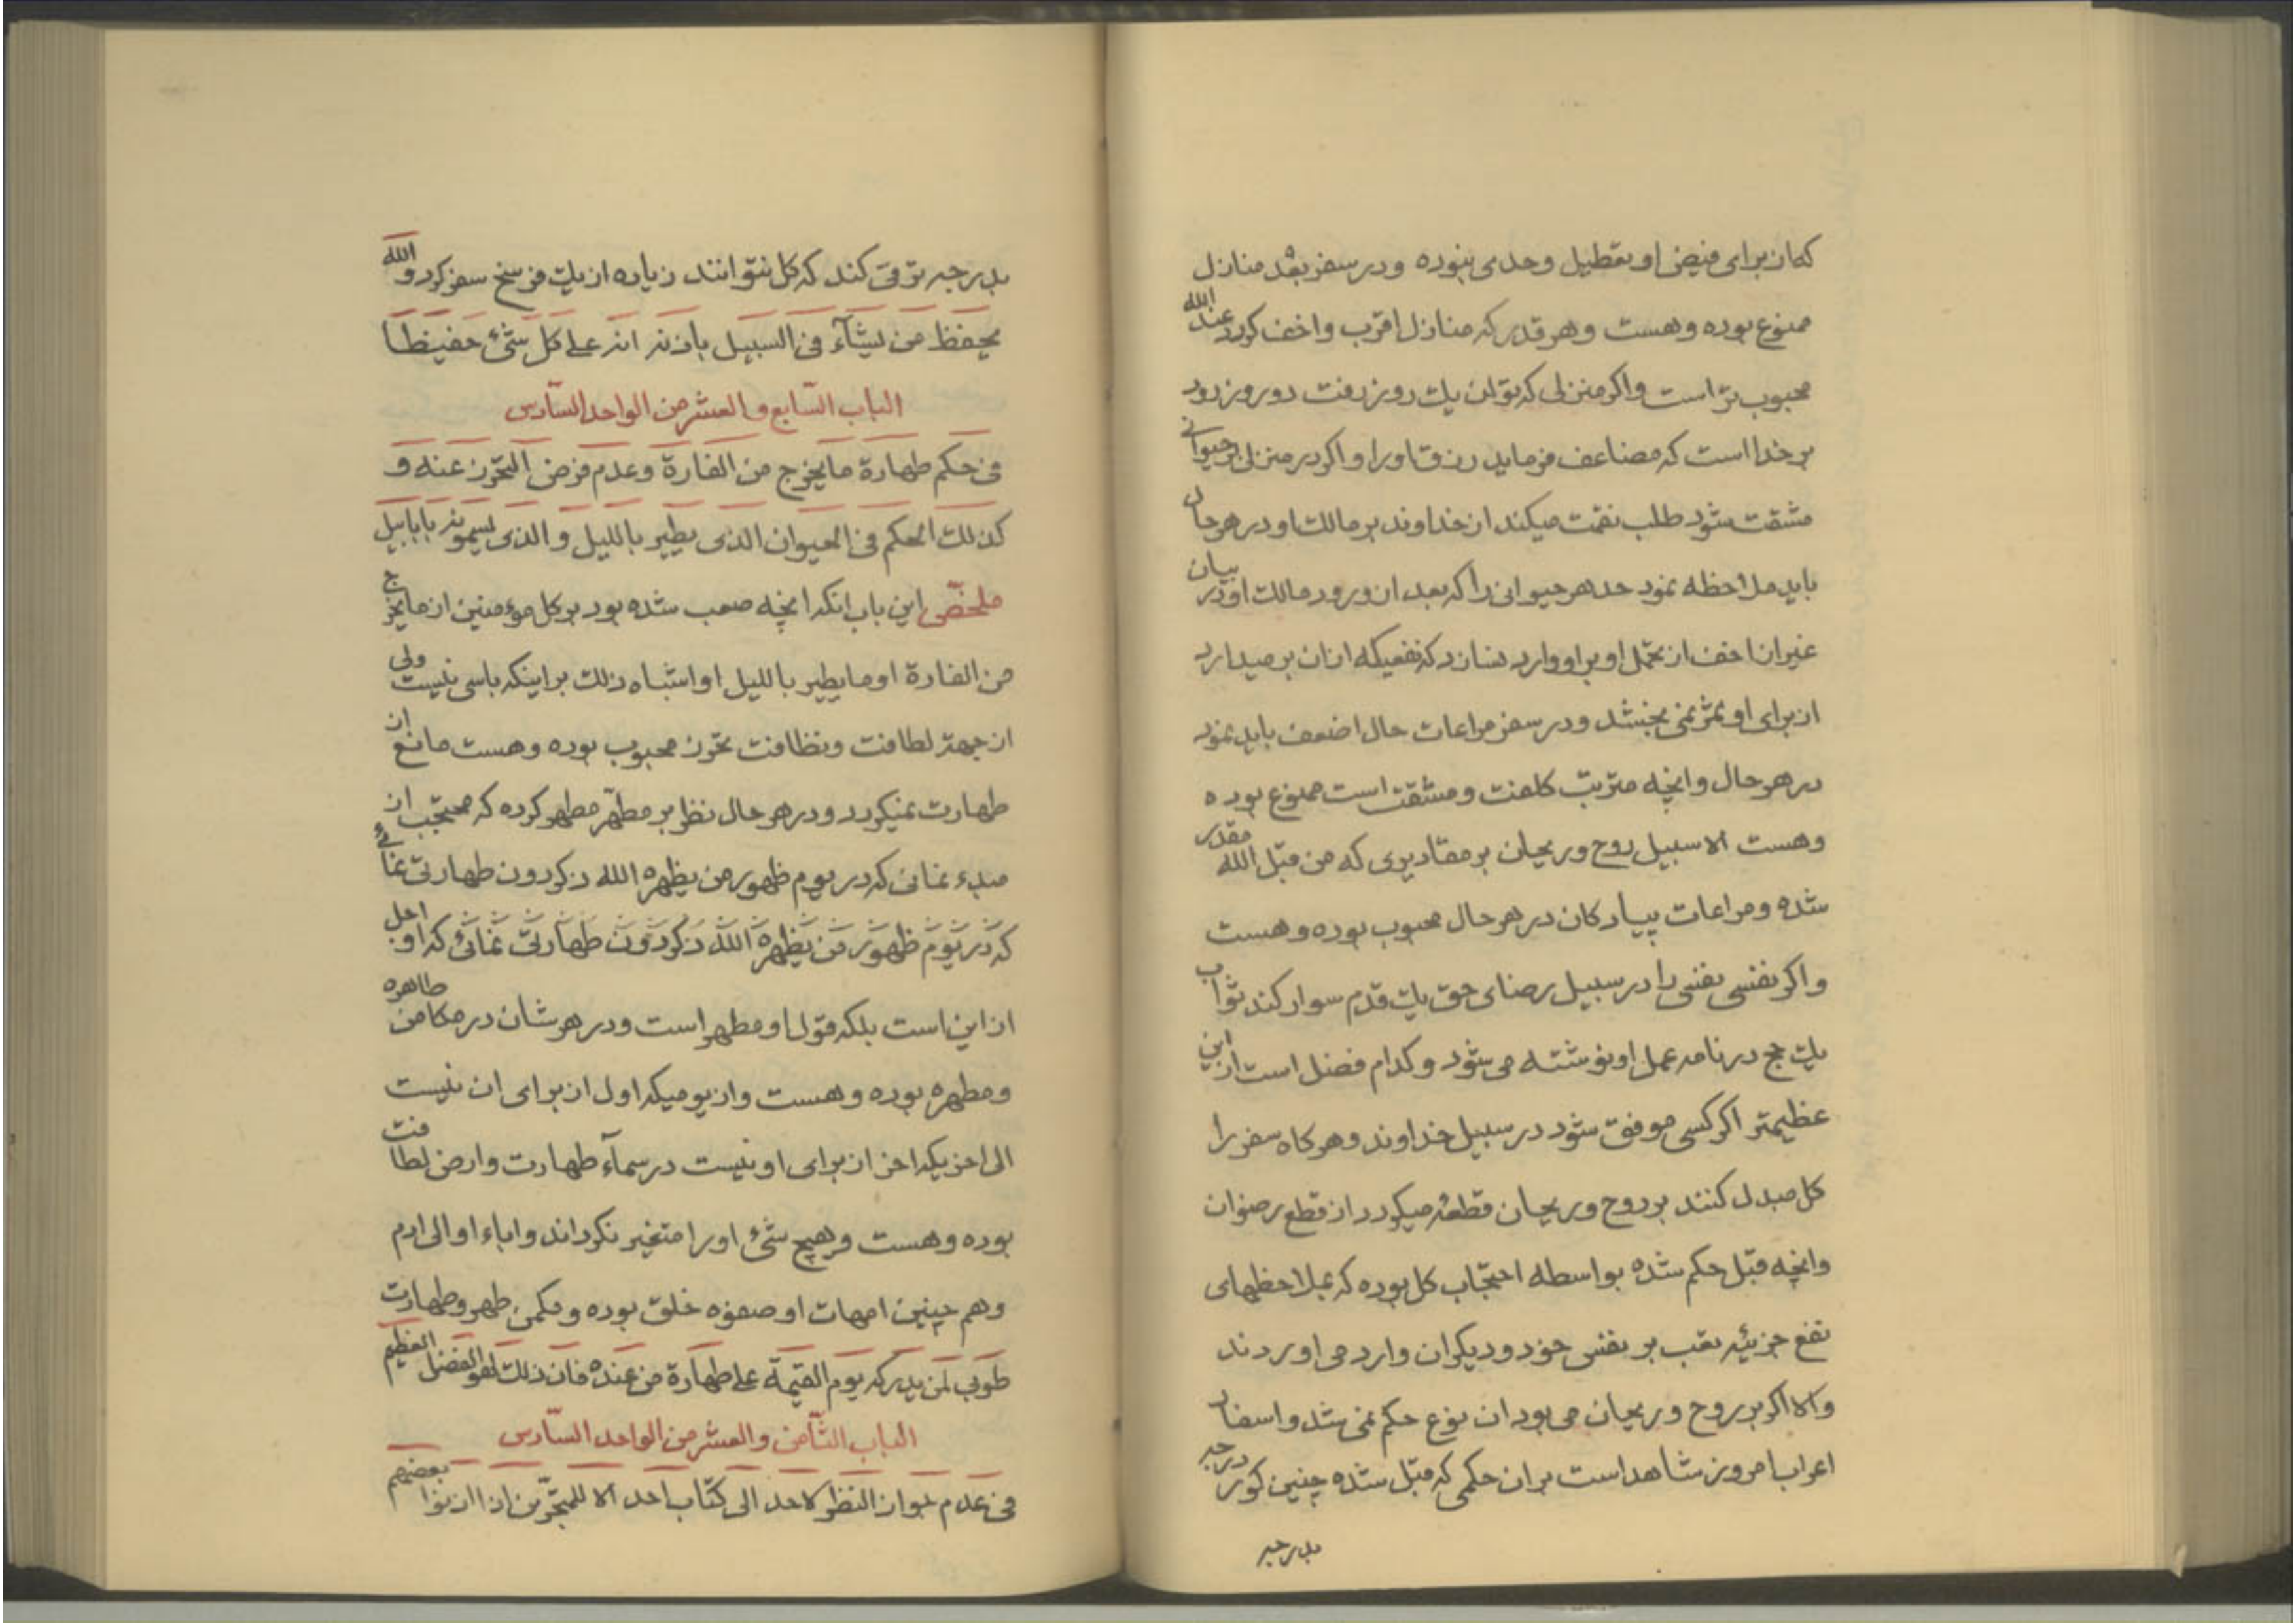 که از برای فیض او تعطیل وحدی نبوده ودر سفر بعْد منازل
ممنوع بوده وهست وهر قدر که منازل اقرب واخف کردد عند الله
محبوب تر است واکر منزلی که بتوان یك روز رفت دو روز رود
بر خدا است که مضاعف فرماید رزق اورا واکر در منزلی بر حیوانی
مشقت شود طلب نقمت میکند از خداوند بر مالك او در هر حال
باید ملاحظه نمود حد هر حیوانی را که بعد از ورود مالك او در بیان
غیر از اخف از تحمل او بر او وارد نسازد که نفعیکه از ان بر میدارد
از برای او ثمر نمی بخشد ودر سفر مراعات حال اضعف باید نمود
در هر حال وانچه مترتب کلفت ومشقت است ممنوع بوده
وهست الا سبیل روح وریحان بر مقادیری که من قبل الله مقدر
شده ومراعات پیاد کان در هر حال محبوب بوده وهست
واکر نفسی نفسی را در سبیل رضای حق یك قدم سوار کند ثواب
یك حج در نامه عمل او نوشته می شود وکدام فضل است از این
عظیمتر اکر کسی موفق شود در سبیل خداوند وهر کاه سفر را
کل مبدل کنند بر روح وریحان قطعهٔ میکردد از قطع رضوان
وانچه قبل حکم شده بواسطه احتجاب کل بوده که بملاحظهای
نفع جزئیه تعب بر نفس خود ودیکران وارد می اوردند
والا اکر بر روح وریحان می بود ان نوع حکم نمی شد واسفار
اعراب امروز شاهد است بر ان حکمی که قبل شده چنین کور در جه
بدرجه
بدرجه ترقی کند که کل نتوانند زیاده از یك فرسخ سفر کرد و الله
یحفظ من یشآء فی السبیل باذنه انه علی کل شئ حفیظا
الباب السّابع و العشر من الواحد السّادس
فی حکم طهارة ما یخرج من الفارة وعدم فرض التحرّز عنه و
کذلك الحکم فی الحیوان الذی یطیر باللیل و الذی یسمونه بابابیل
ملخّص این باب انکه انچه صعب شده بود بر کل مؤمنین از ما یخرج
من الفارة او ما یطیر باللیل او اشباه ذلك بر اینکه باسی نیست ولی
از جهة لطافت ونظافت تحرّز محبوب بوده وهست مانع از
طهارت نمیکردد ودر هر حال نظر بر مطهّر مطهر کرده که محتجب از
مبدء نمانی که در یوم ظهور من یظهره الله ذکر دون طهارتی نمائی
که در یوم ظهور من یظهره الله ذکر دون طهارتی نمائی که او اجل
از این است بلکه قول او مطهر است ودر هر شان در مکامن طاهره
ومطهره بوده وهست واز یومیکه اول از برای ان نیست
الی اخریکه اخر از برای او نیست در سمآء طهارت وارض لطافت
بوده وهست وهیچ شئ اورا متغیر نکرداند واباء او الی ادم
وهم چنین امهات او صفوه خلق بوده وحکمی طهر وطهارت
طوبی لمن یدرکه یوم القیمة علی طهارة من عنده فان ذلك لهو الفضل العظیم
الباب الثّامن و العشر من الواحد السّادس
فی عدم جواز النظر لاحد الی کتاب احد الا للمتجرّین اذا اذنوا بعضهم